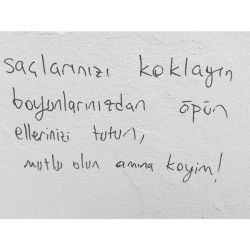 saçlarınızı koklayın
boyunlarınızdan öpün
ellerinizi tutun,
mutlu olun amına koyim!